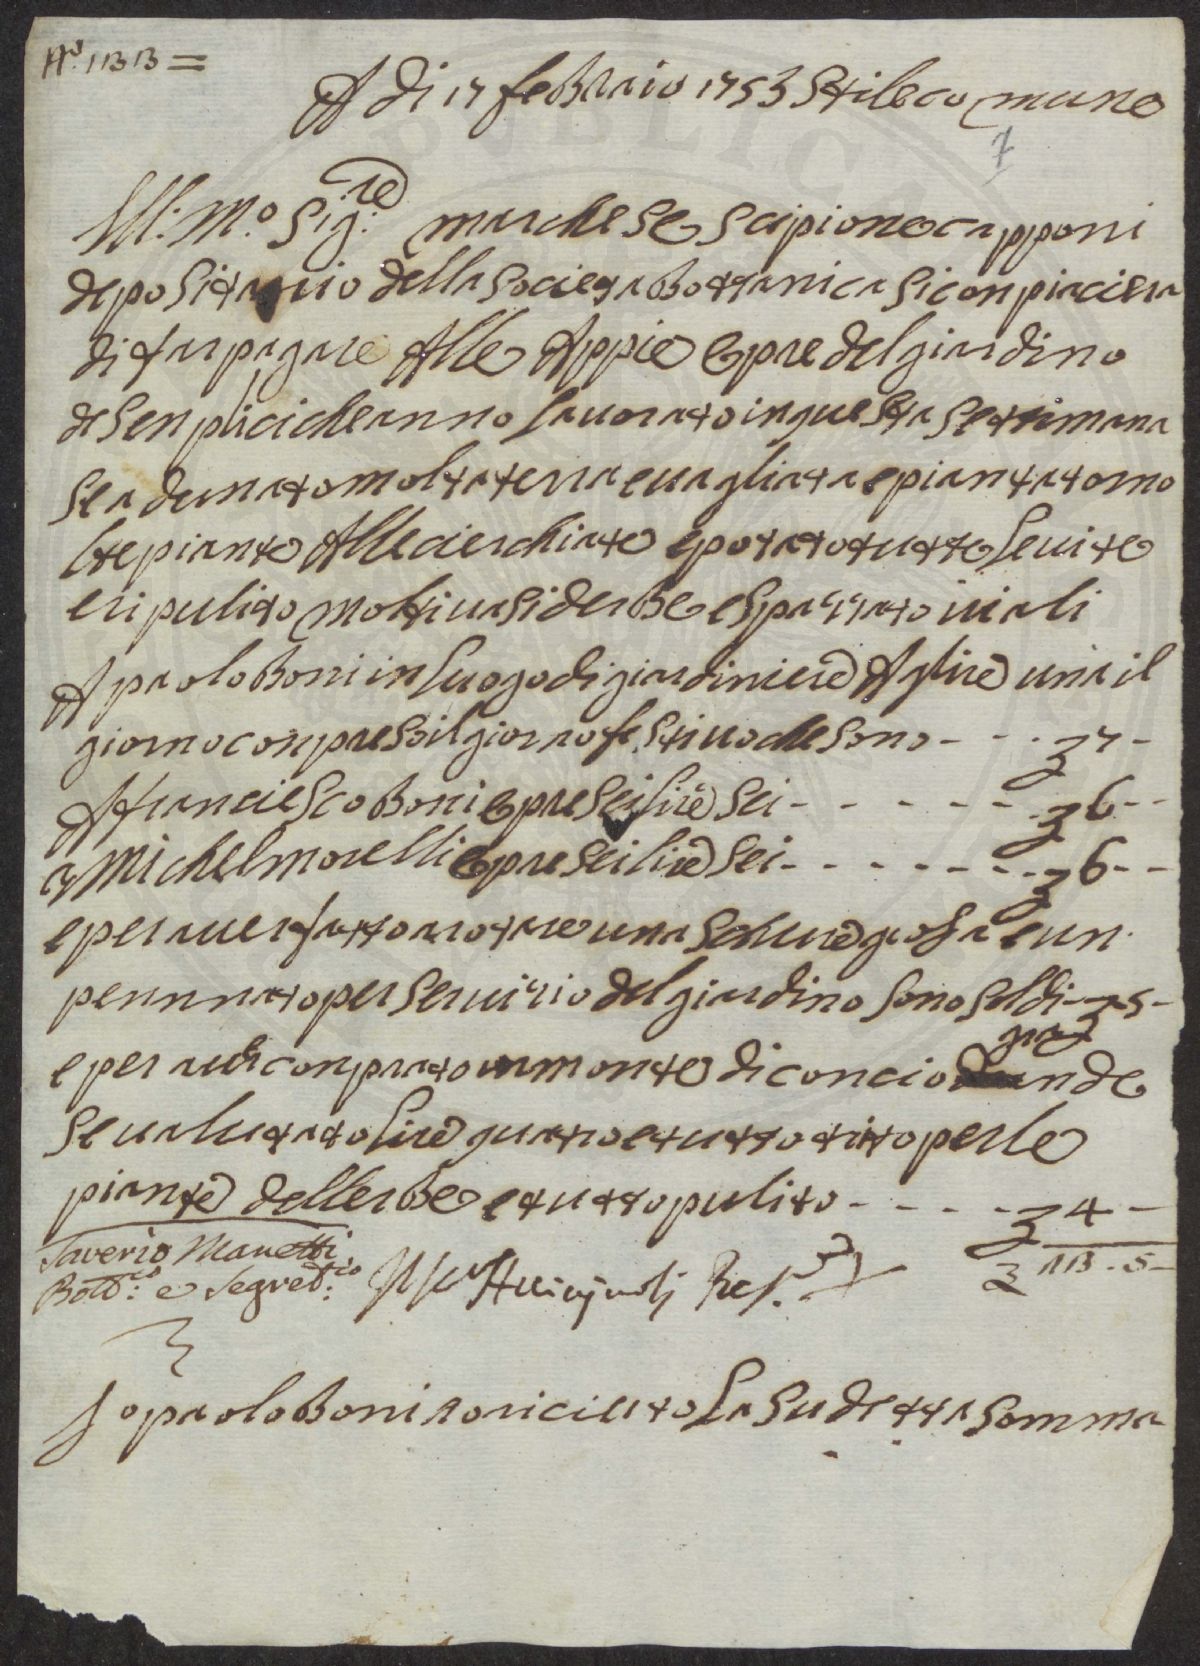 A di 17 febraio 1753 Stile comune
7
Ill: m.o Sig:re marchese scipione capponi
depositario della Societa Bottanica si conpiaciera
di far pagare Alle Appie Opre del giardino
de senplici che anno lauorato in questa settimana
se a dumato molta terra e uagliata e piantato mo
lte piante Alle cierchiate e potato tutte le uite
e ripulito molti uasi derbe e spazzato uiali
A paolo Boni in luogo di giardiniere A lire una il
giorno conpreso il giorno festiuo che sono - - - 7 -
A franciesco Boni Opre sei lire sei - - - - - - 6 - -
A Michel morelli Opre sei lire sei - - - - - - - 6 - -
e per auer fatto arotare una scure grosa e un
pennato per seruizio del giardino sono soldi - 5 -
e per auer conprato un monte di concio grande
se ualutato lire quatro e tutto tirto per le
piante delle erbe e tutto pulito - - - - - 4 -
Saverio Manetti
Bott:co e Segret:rio
Pres:
Jo paolo Boni o riceuto la sudetta somma